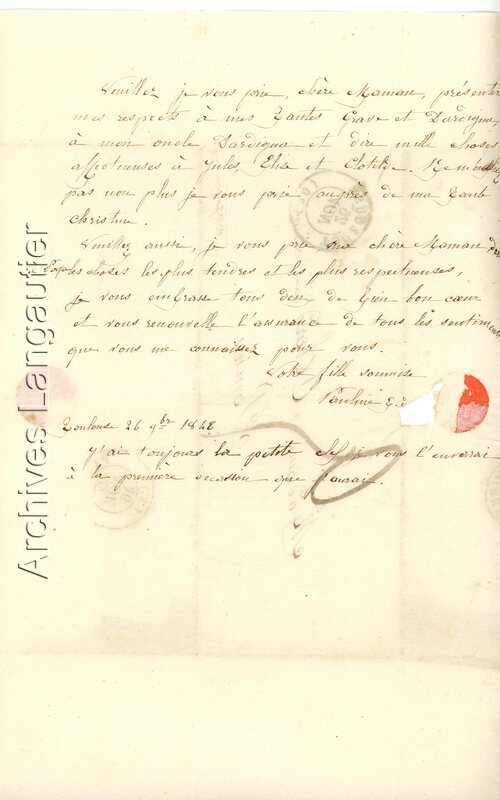 Veuillez je vous prie, chère Maman, présenter
mes respects à mes Tantes Grave et Dardignac,
à mon oncle Dardignac et dire mille choses
affectueuses à Jules, Elise et Clotilde. Ne m'oubliez
pas non plus je vous prie auprès de ma Tante
Christine.
Veuillez aussi, je vous prie ma chère Maman, dire
à Papa les choses les plus tendres et les plus respectueuses,
je vous embrasse tous deux de bien bon cœur
et vous renouvelle l'assurance de tous les sentiments
que vous me connaissez pour vous.
Votre fille soumise
Pauline E. d
Toulouse 26 9bre 1848
J'ai toujours la petite clef je vous l'enverrai
à la première occasion que j'aurai.
Archives Langautier